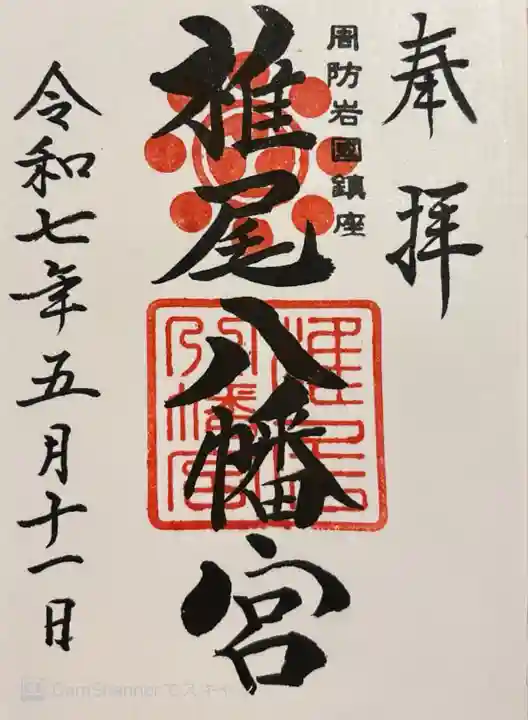 奉拝
周防岩國鎮座
椎尾八幡宮
令和七年五月十一日
CamScannerでスキャ